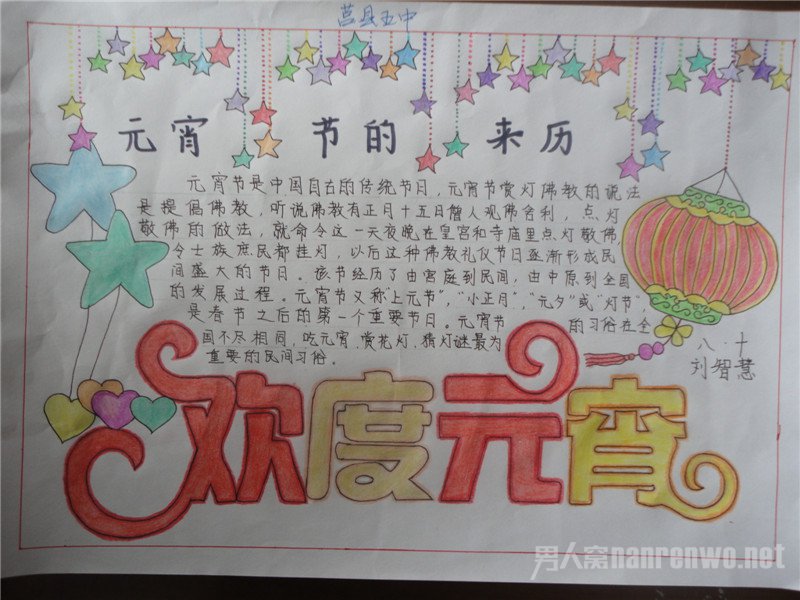 莒县五中
元宵节的来历
元宵节是中国自古的传统节日，元宵节赏灯佛教的说法
是提倡佛教，听说佛教有正月十五日僧人观佛舍利，点灯
敬佛的做法，就命令这一天夜晚在皇宫和寺庙里点灯敬佛，
令士族庶民都挂灯，以后这种佛教礼仪节日逐渐形成民
间盛大的节日。该节经历了由宫庭到民间，由中原到全国
的发展过程。元宵节又称"上元节"，"小正月"，"元夕"或"灯节"，
是春节之后的第一个重要节日。元宵节 的习俗在全
国不尽相同，吃元宵、赏花灯、猜灯谜最为
重要的民间习俗。
八·十
刘智慧
欢度元宵
男人窝nanrenwo.net